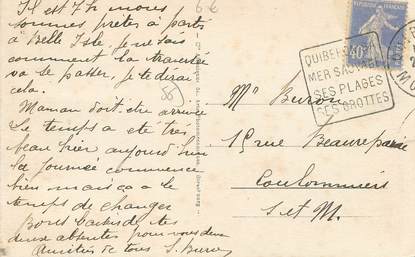 Il est 7h nous
sommes prêtes à partir
à Belle Isle, je ne sais
comment la traversée
va se passer, je te dirai
cela.
Maman doit être arrivée
Le temps a été très
beau hier aujourd'hui
la journée commence
bien mais ça a le
temps de changer
Bons baisers de tes
deux absentes pour vous deux
Amitiés de tous S. Buron
6€
QUIBERON
MER SAUVAGE
SES PLAGES
SES GROTTES
40c
Mr Buron
15 rue Beaurepaire
Coulommiers
S et M.